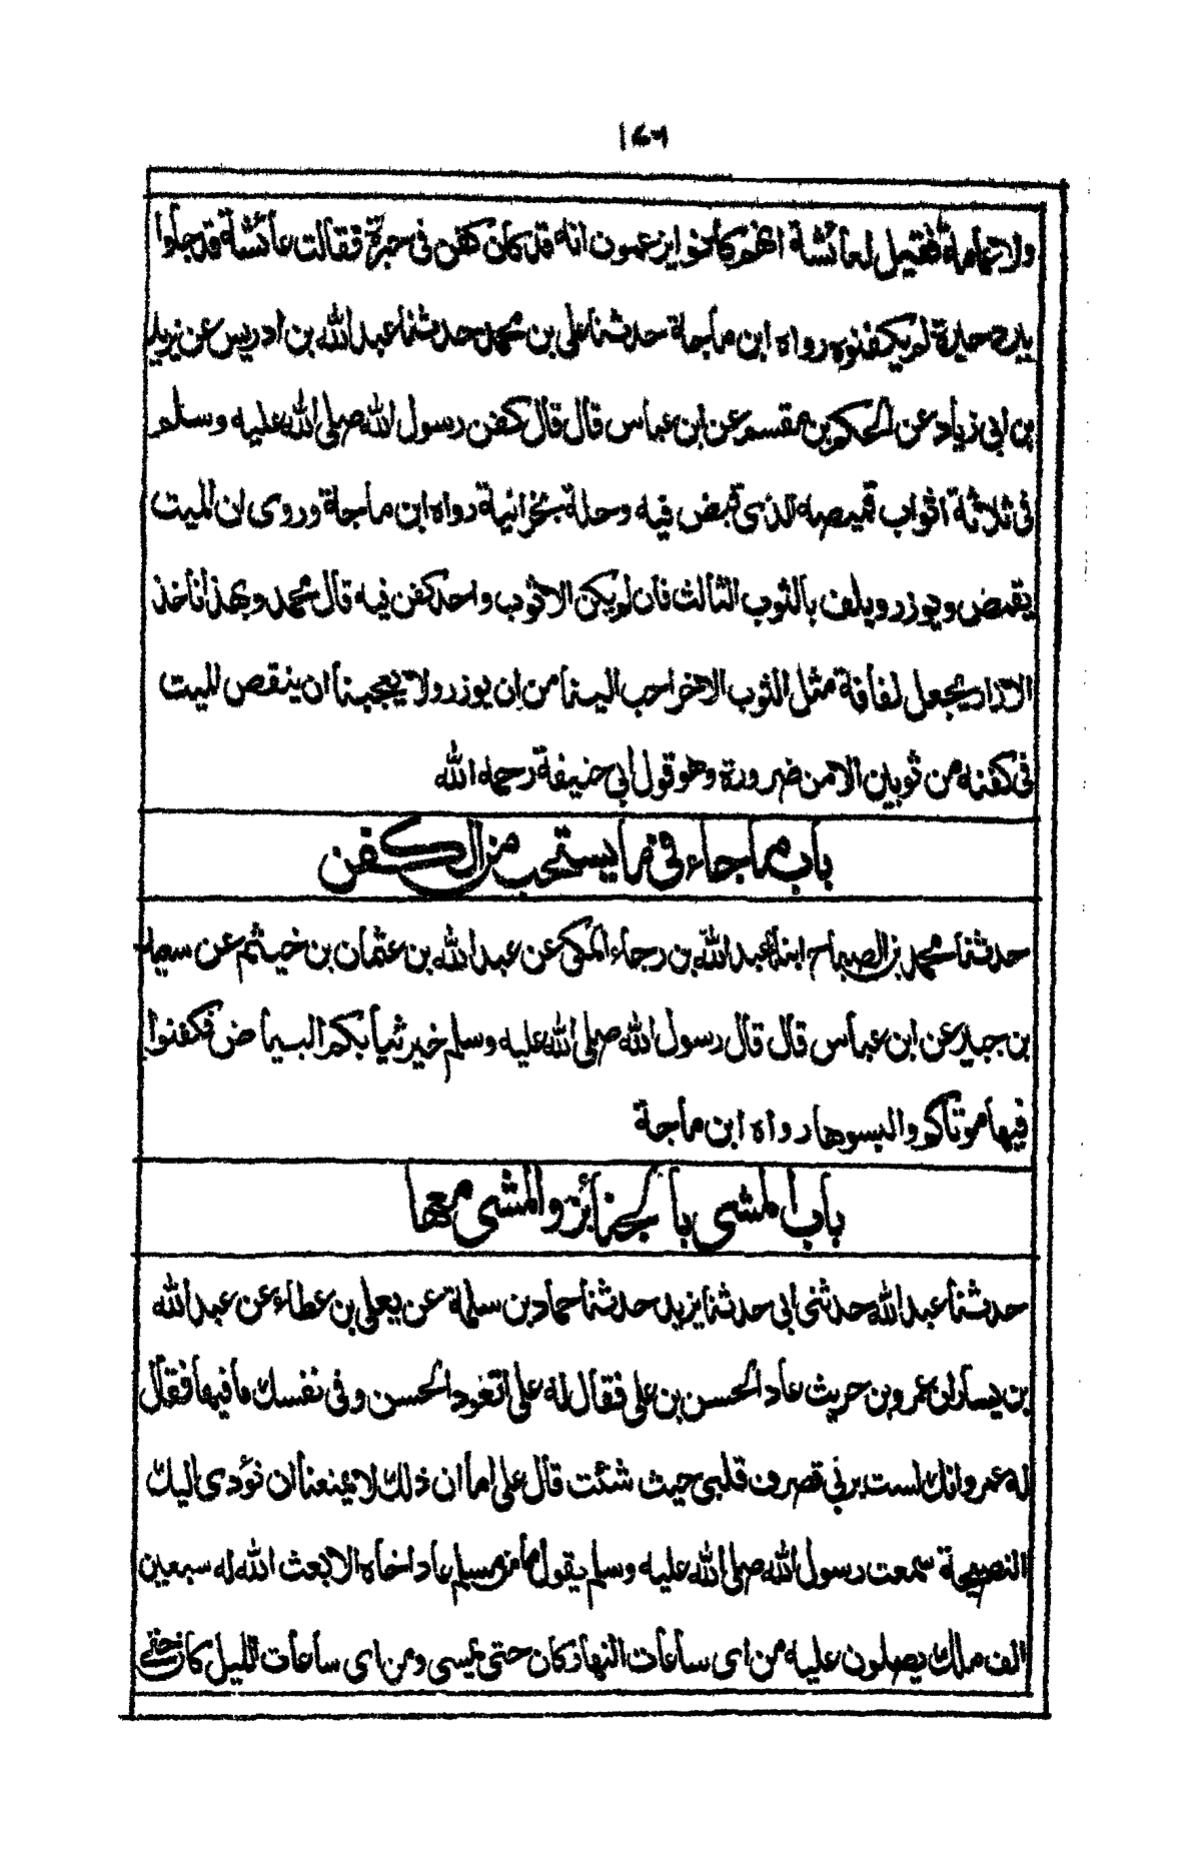 ١٤٦
ولا عمامة فقيل لعائشة انهم كانوا يزعمون انه قد كان كفن فى حبرة فقالت عائشة قد جاءوا
ببرد حبرة لم يكفنوه رواه ابن ماجة حدثنا على بن محمد حدثنا عبد الله بن ادريس عن يزيد
بن ابى زياد عن الحكم بن مقسم عن ابن عباس قال قال كفن رسول الله صلى الله عليه وسلم
فى ثلاثة اثواب قميصه الذى قبض فيه وحلة نجرانية رواه ابن ماجة وروى ان الميت
يقمص ويوزر ويلف بالثوب الثالث فان لم يكن الا ثوب واحد كفن فيه قال محمد وبهذا ناخذ
الازار يجعل لفافة مثل الثوب الاخر احب الينا من ان يوزر ولا يعجبنا ان ينقص الميت
فى كفنه من ثوبين الا من ضرورة وهو قول ابى حنيفة رحمه الله
باب ما جاء فى ما يستحب من الكفن
حدثنا محمد بن الصباح انبانا عبد الله بن رجاء المكى عن عبد الله بن عثمان بن خيثم عن سعيد
بن جبير عن ابن عباس قال قال رسول الله صلى الله عليه وسلم خير ثيابكم البياض فكفنوا
فيها موتاكم والبسوها رواه ابن ماجة
باب المشى بالجنائز والمشى معها
حدثنا عبد الله حدثنى ابى حدثنا يزيد حدثنا حماد بن سلمة عن يعلى بن عطاء عن عبد الله
بن يسار ان عمرو بن حريث عاد الحسن بن على فقال له على اتعود الحسن وفى نفسك ما فيها فقال
له عمرو انك لست بربى تصرف قلبى حيث شئت قال على اما ان ذلك لا يمنعنا ان نؤدى اليك
النصيحة سمعت رسول الله صلى الله عليه وسلم يقول ما من مسلم عاد اخاه الا بعث الله له سبعين
الف ملك يصلون عليه من اى ساعات النهار كان حتى يمسى ومن اى ساعات الليل كان حتى